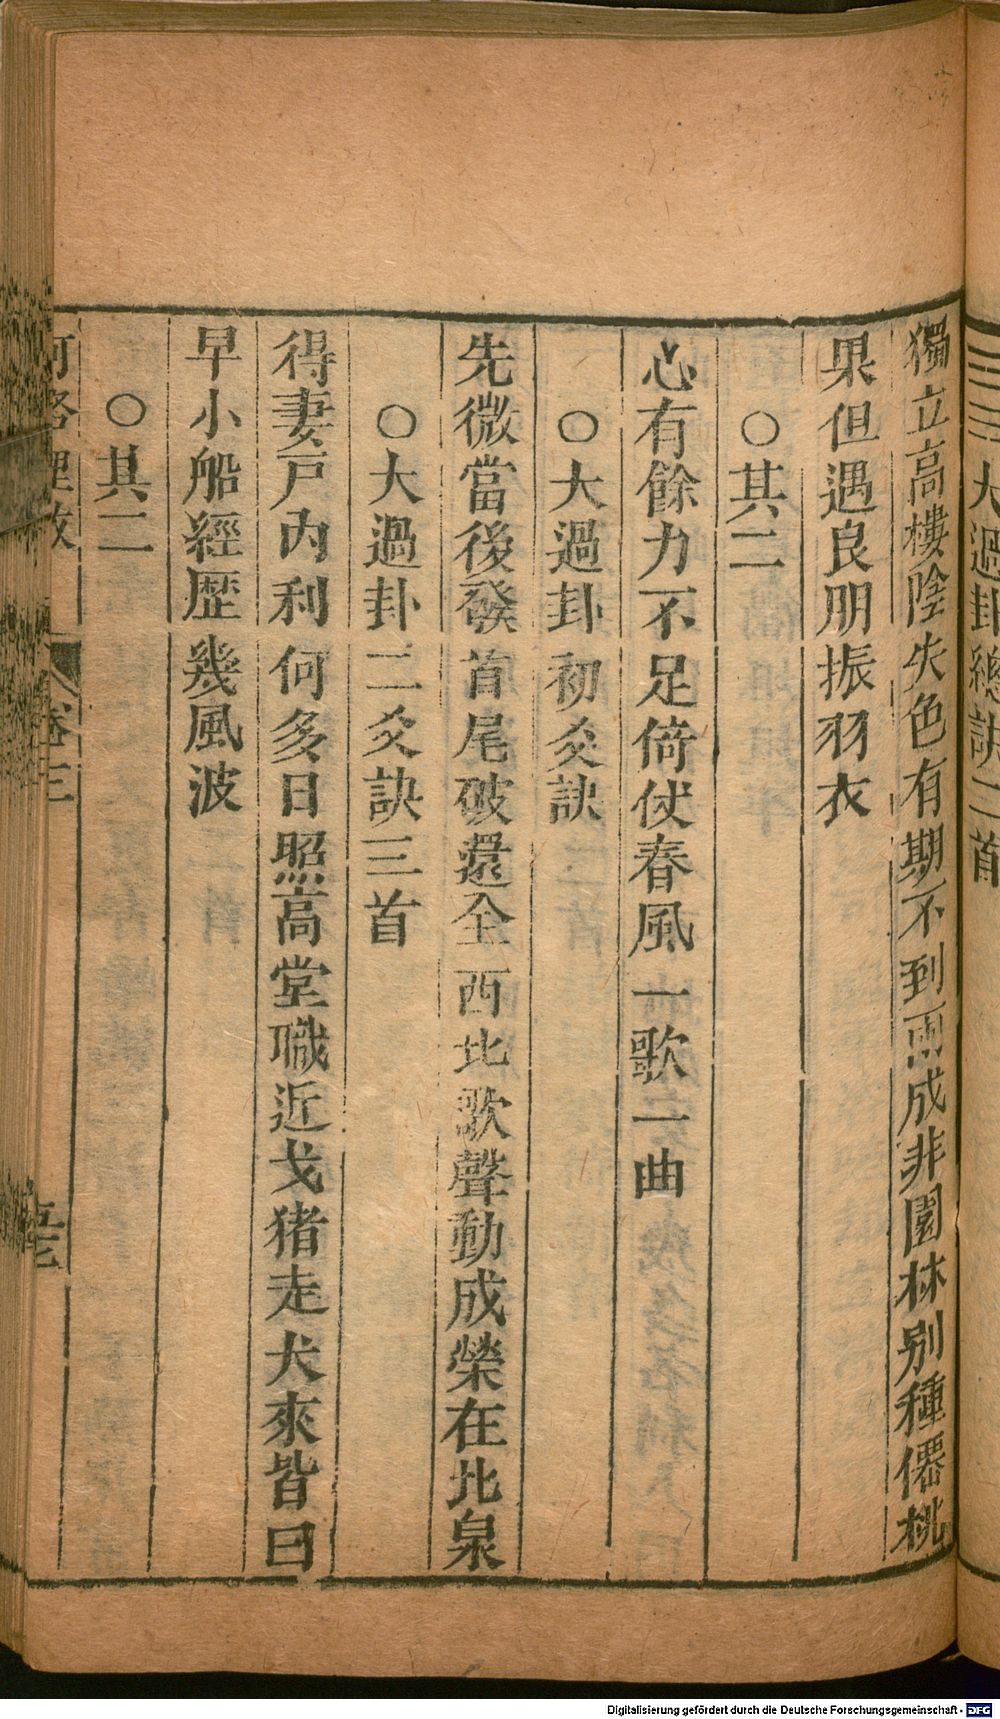 大過卦總訣二首
獨立高樓陰失色有期不到兩成非園林別種僊桃
果但遇良朋振羽衣
○其二
心有餘力不足倚仗春風一歌一曲
○大過卦初爻訣
先微當後發首尾破還全西北歌聲動成榮在北泉
○大過卦二爻訣三首
得妻戶內利何多日照高堂職近戈猪走犬來皆曰
早小船經歷幾風波
○其二
河洛理數 卷三 五十七
Digitalisierung gefördert durch die Deutsche Forschungsgemeinschaft - DFG